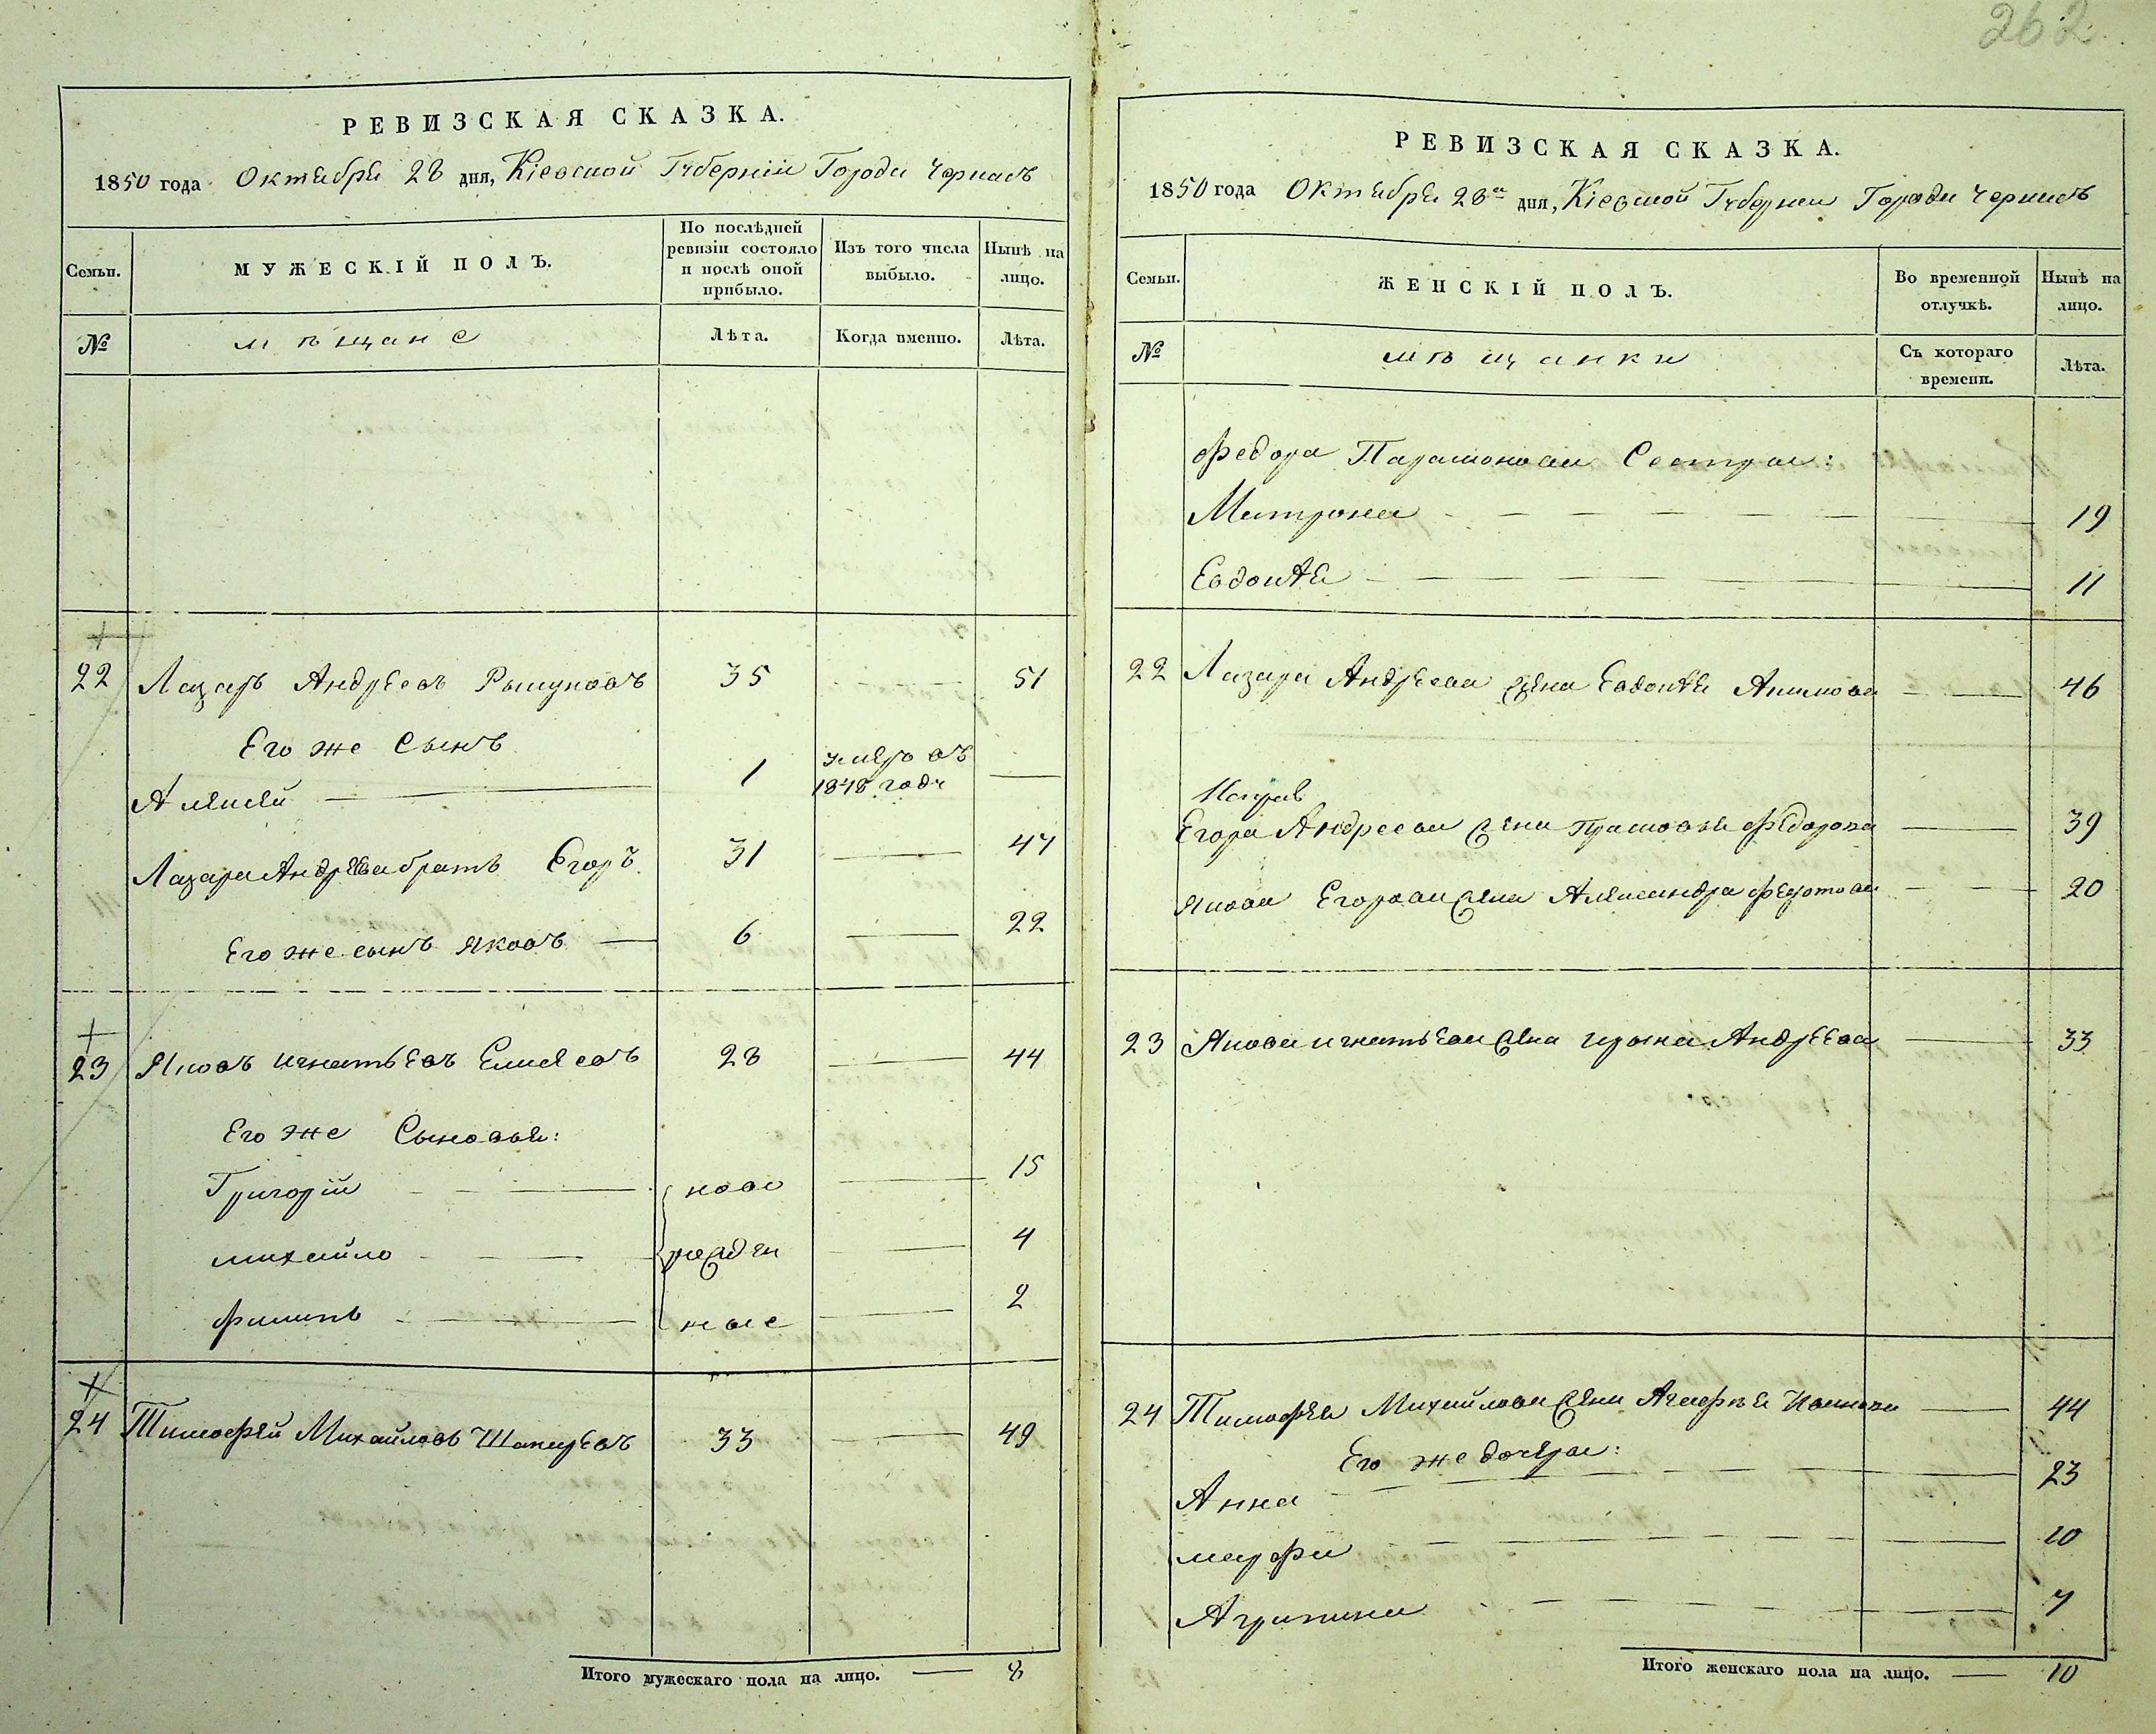 262.
РЕВИЗСКАЯ СКАЗКА.
1850 года Октября 28 дня, Кіевской Губерніи Города Черкасъ
Семьи.
МУЖЕСКІЙ ПОЛЪ.
По послѣдней ревизіи состояло и послѣ оной прибыло.
Изъ того числа выбыло.
Нынѣ на лицо.
№
мѣщане
Лѣта.
Когда именно.
Лѣта.
22 Лазарь Андреевъ 35 51
Его же Сынъ
Алексей 1 умеръ въ 1848 годе
Лазаря Андреева братъ Егоръ 31 47
Его же сынъ Яковъ 6 22
23 Яковъ Игнатьевъ Елисеевъ 28 44
Его же Сыновья:
Григорій ново 15
михайло рожден 4
филипъ ные 2
24 Тимофей Михайловъ 33 49
Итого мужескаго пола на лицо. 8
РЕВИЗСКАЯ СКАЗКА.
1850 года Октября 28а дня, Кіевской Губернии Города Черкасъ
Семьи.
ЖЕНСКІЙ ПОЛЪ.
Во временной отлучкѣ.
Нынѣ на лицо.
№
мѣщанки
Съ котораго времени.
Лѣта.
Федора Парамонова Сестры:
Матрона 19
Евдокія 11
22 Лазаря Андреева жена Евдокія 46
Егора Андреева жена Прасковья Федорова 39
Якова Егорова жена Александра Федотова 20
23 Якова Игнатьева жена Ирына Андреева 33
24 Тимофея Михайлова жена Агафия Иванова 44
Его же дочеры:
Анна 23
марфа 10
Агрипина 7
Итого женскаго пола на лицо. 10